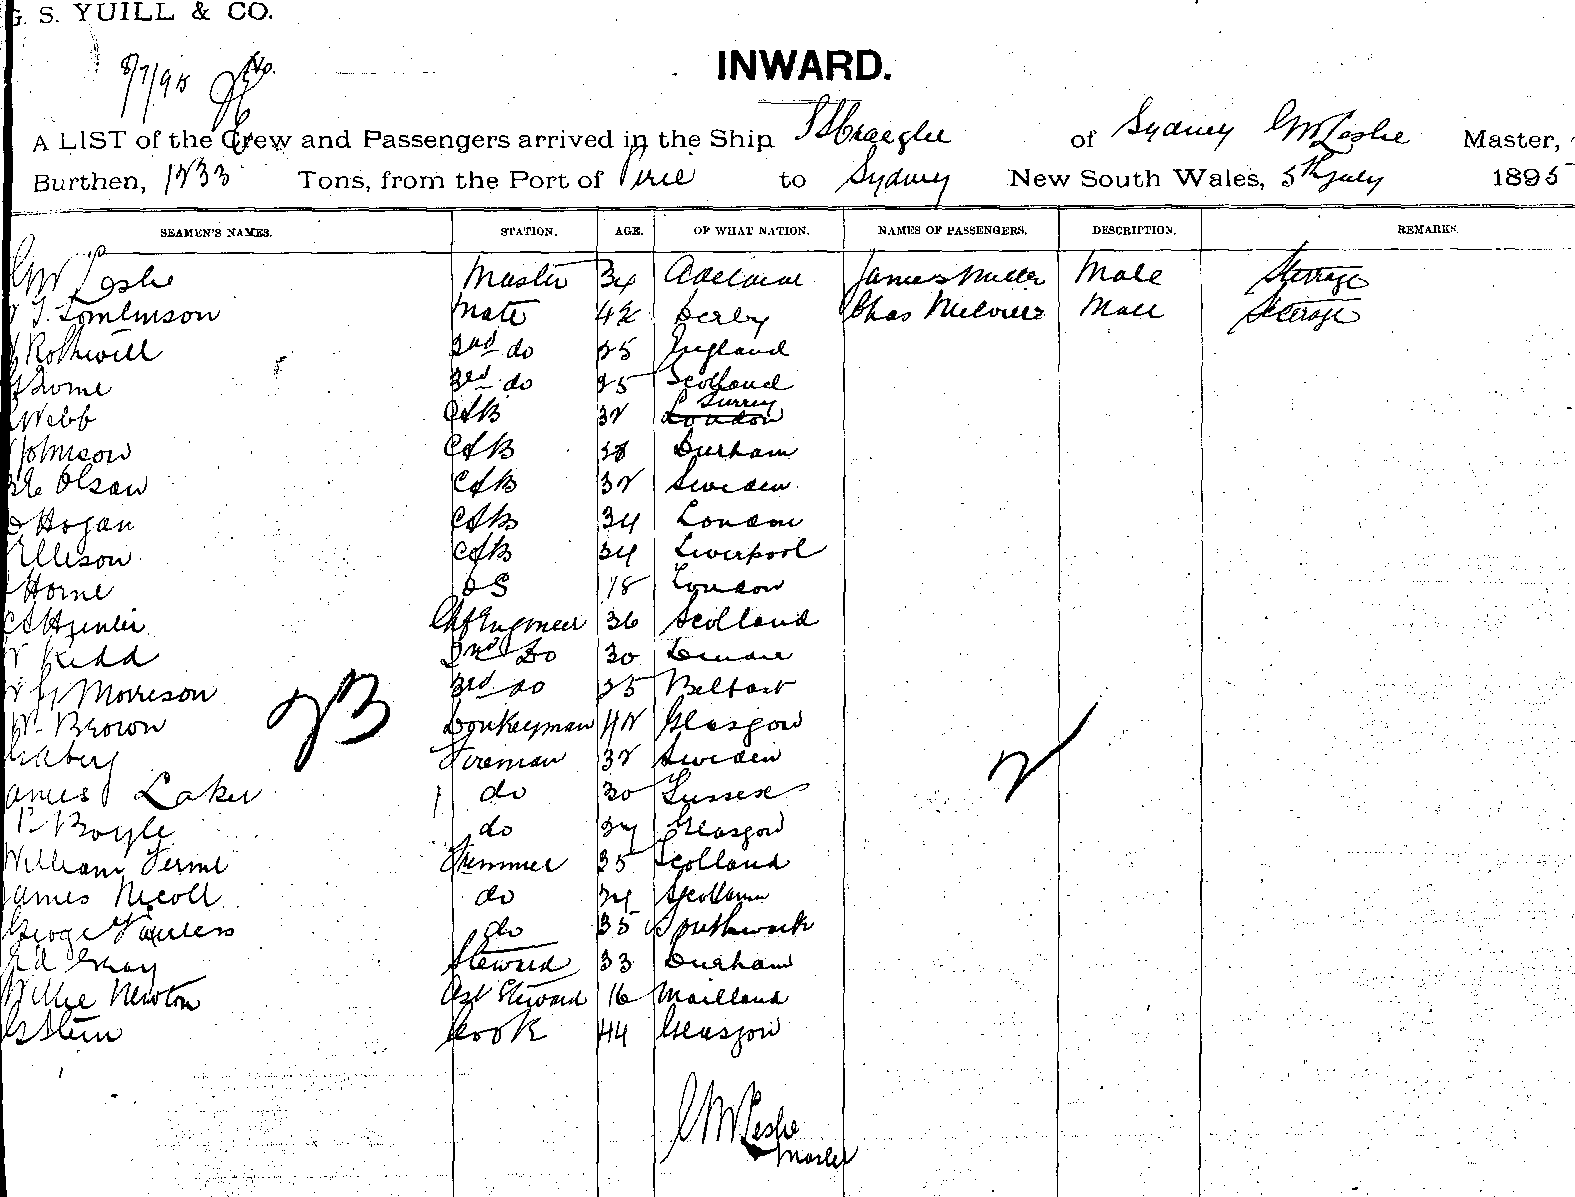 G. S. YUILL & CO.
8/7/95
INWARD.
A LIST of the Crew and Passengers arrived in the Ship of Sydney G M Leslie Master,
Burthen, 1233 Tons, from the Port of Pirie to Sydney New South Wales, 5th July 1895
SEAMEN'S NAMES. STATION. AGE. OF WHAT NATION. NAMES OF PASSENGERS. DESCRIPTION. REMARKS.
G M Leslie Master 34 Adelaide James Miller Male Steerage
Tomlinson Mate 42 Derby Chas Male Steerage
Rothwell 2nd do 25 England
3rd do 25 Scotland
Webb AB 32 London Surrey
Johnson AB 28 Durham
Olsan AB 32 Sweden
Hogan AB 34 London
Ellison AB 34 Liverpool
Horne OS 18 London
Chf Engineer 36 Scotland
Kidd 2nd Do 30
Morrison 3rd do 25 Belfast
Brown Donkeyman 42 Glasgow
Fireman 32 Sweden
ames Laker do 30 Sussex
P Boyle do 27 Glasgow
William Trimmer 35 Scotland
James Nicoll do 24 Scotland
George do 35 Southwark
Gray Steward 33 Durham
Willie Newton Ast Steward 16 Maitland
Stein Cook 44 Glasgow
23
2
G M Leslie
Master